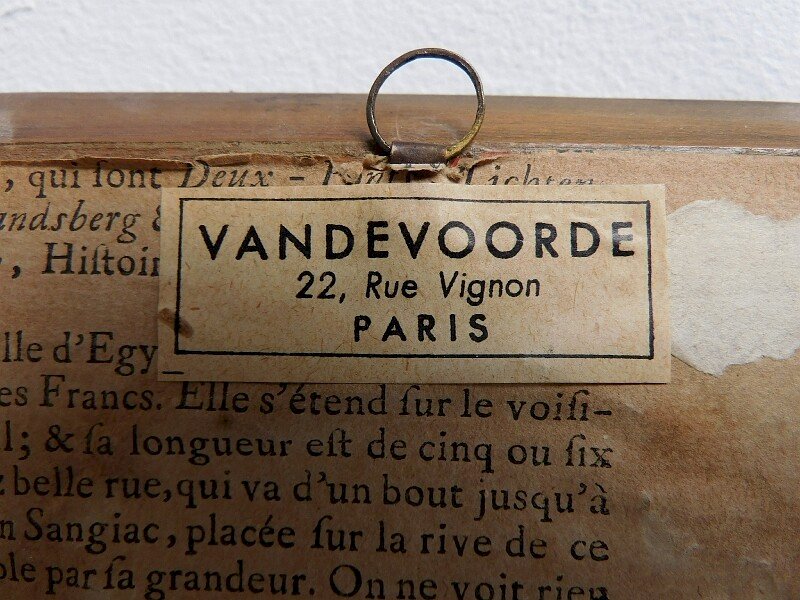 , qui ſont Deux - Lichten
andsberg &
, Hiſtoir
VANDEVOORDE
22, Rue Vignon
PARIS
lle d'Egy
es Francs. Elle s'étend ſur le voiſi-
l; & ſa longueur eſt de cinq ou ſix
z belle rue, qui va d'un bout jusqu'à
n Sangiac, placée ſur la rive de ce
ble par ſa grandeur. On ne voit rien